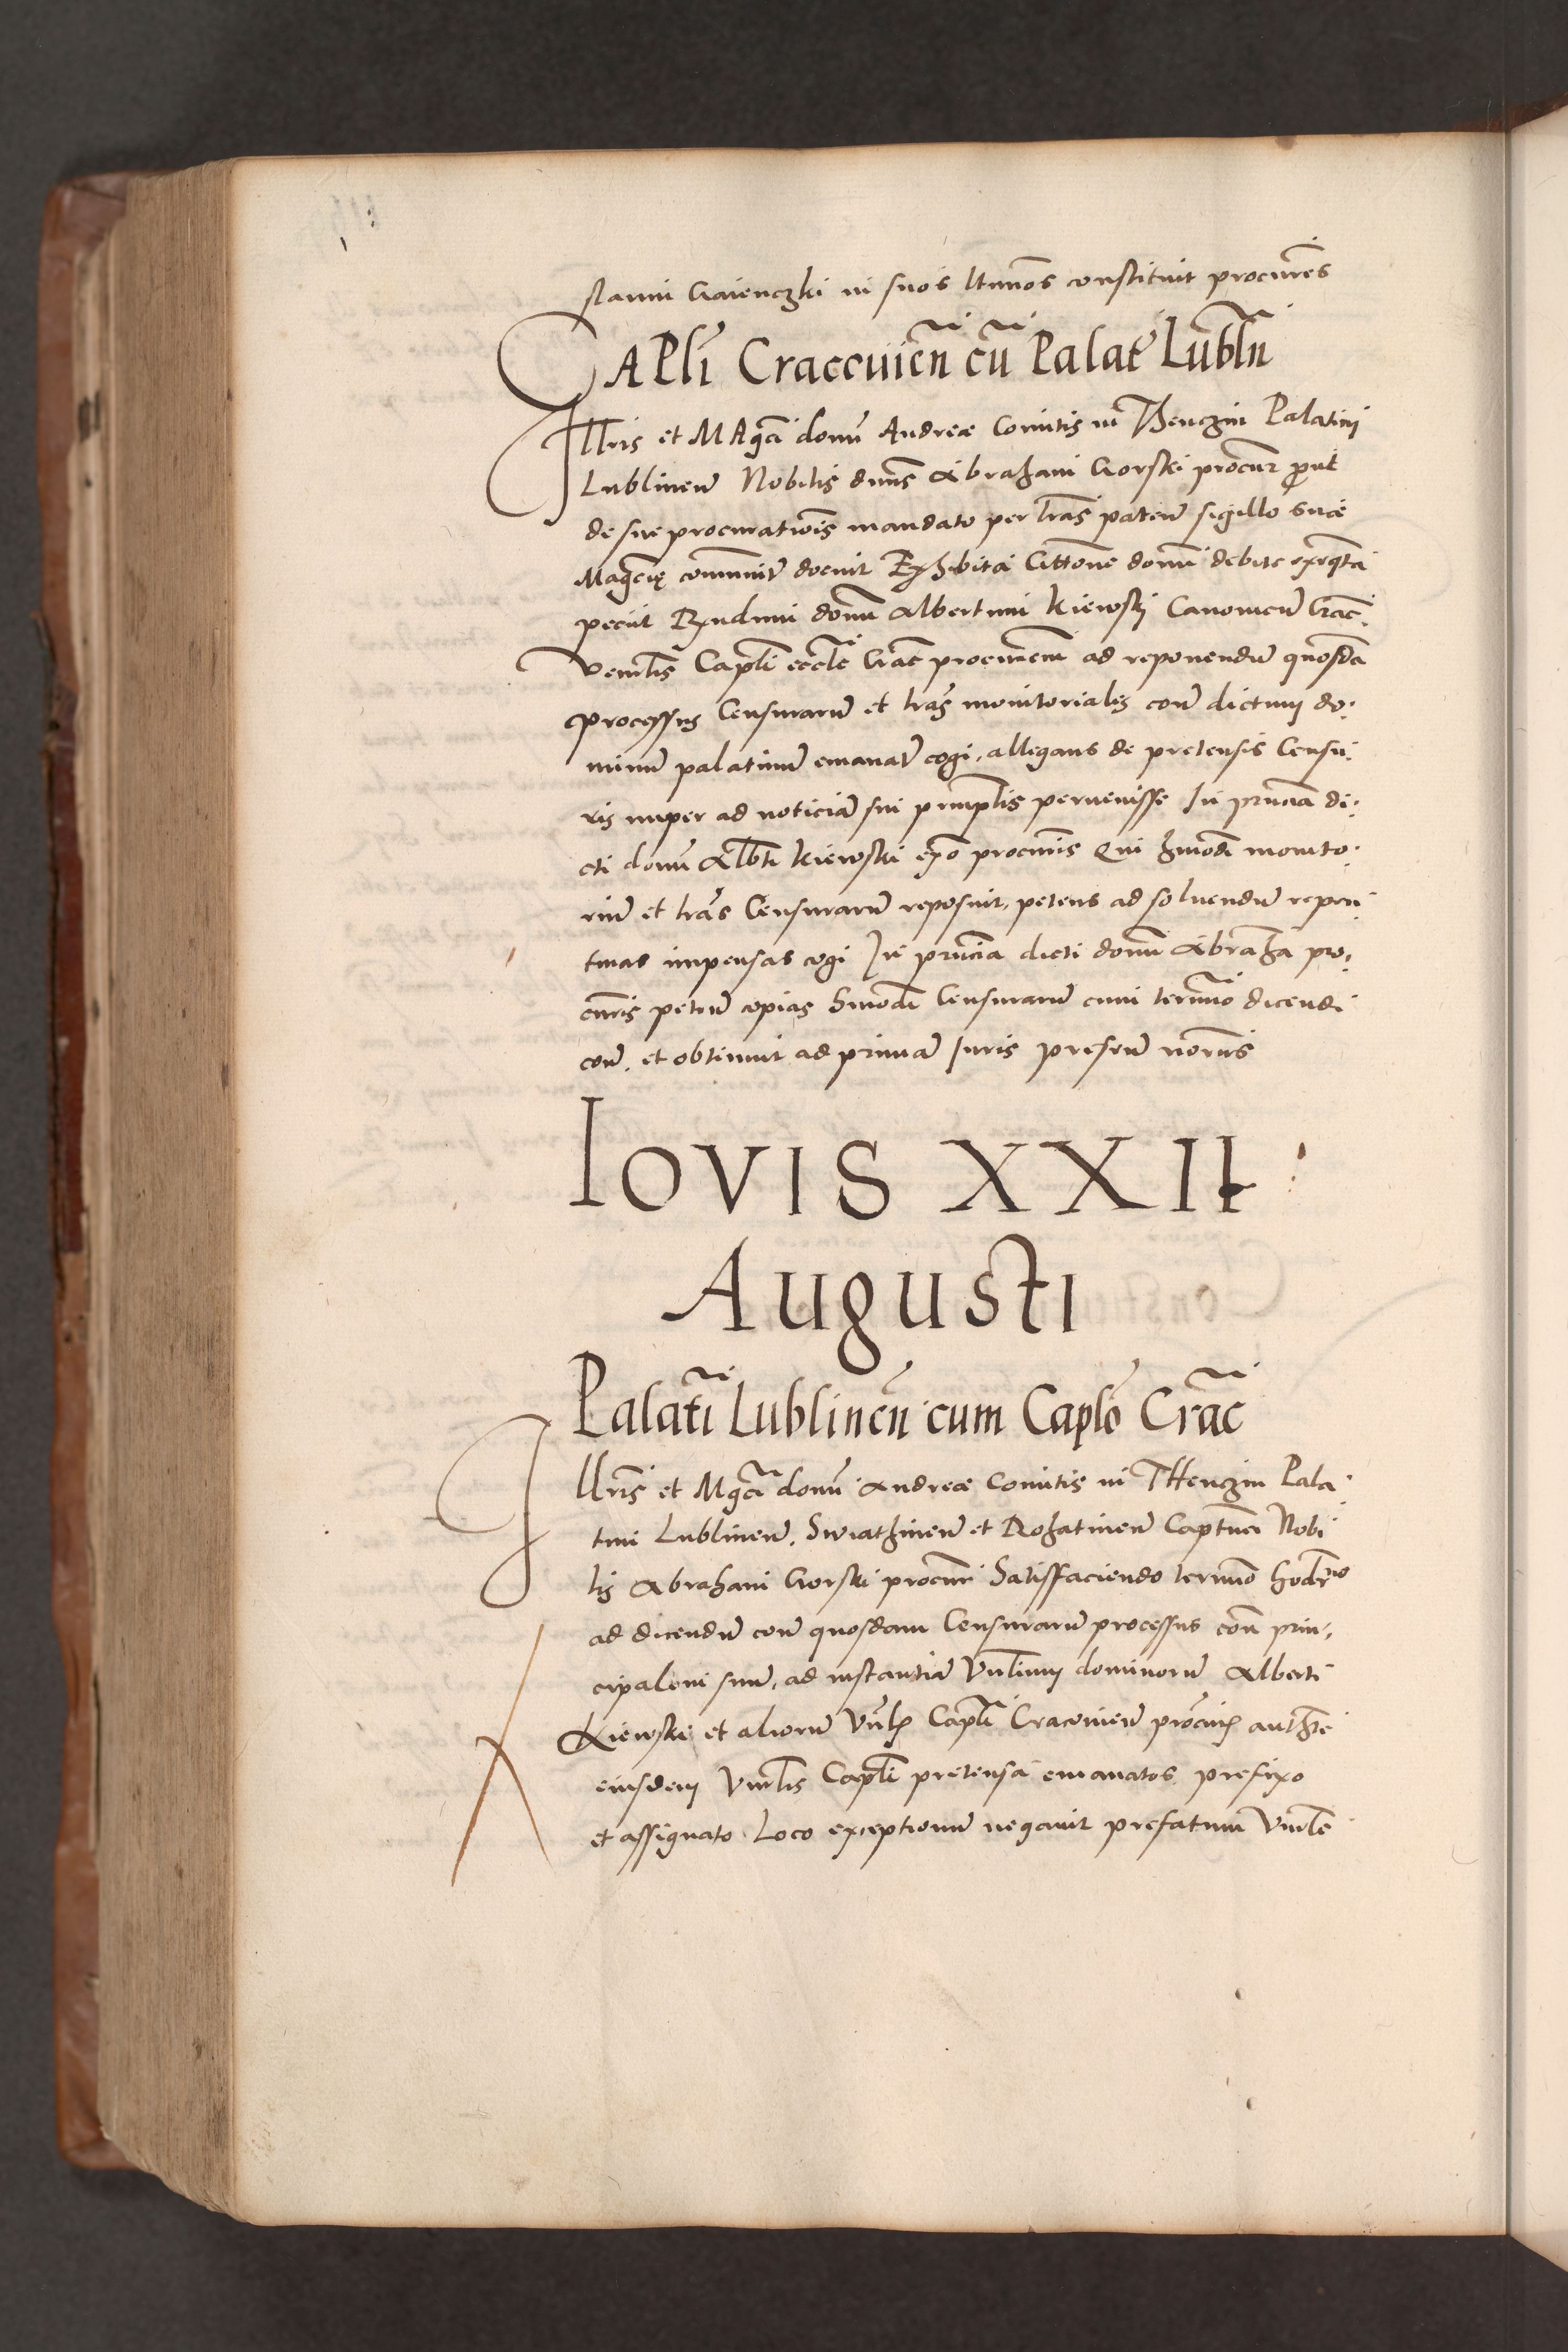 slaum Gaienczki in suos ltimos constituit procures
CAPli Craccuien cu Palat Lubln
Illris et MAgci domi Andreæ Comitis in THenczin Palatini
Lublinen Nobilis dnus Abrahami Gorski procur prout
de sue procurationis mandato per lras paten sigillo suæ
Magcie communit docuit Exhibita Citione domi debite exeqta
peciit Rndum domi Albertum Kiewski Canonicum Crac:
Venlis Capli eccle Crac procurem ad reponendu quosda
processus Censuraru et lras monitoriales con dictum do:
minu palatinu emanat cogi, allegans de pretensis Censu:
ris nuper ad noticia sui principlis peruenisse In pncia di:
cti domi Albti Kiewski expo procuris Qui hmodi monito:
riu et lras Censuraru reposuit, petens ad soluendu repen
tinas impensas cogi In pncia dicti domi Abraha pro:
curis petiu copias hmodi Censuraru cum termio dicendi
con, et obtinuit ad prima Iuris presen noruis
IOVIS XXII
Augusti
Palati Lublinen cum Caplo Crac
Illris et Mgci domi Andreæ Comitis in THenczin Pala
tini Lublinen, Swiathinen et Rohatinen Captnei Nobi
lis Abrahami Gorski procur Satisfaciendo termio hodrno
ad dicendu con quosdam Censuraru processus con prin,
cipalem suu, ad instantia Vnlium dominoru Alberti
Kiewski et alioru Vnlis Capli Cracouien procur authte
eiusdem Vnrlis Capli pretensa emanatos prefixo
et assignato Loco exceptionu negauit prefatum Vnrle